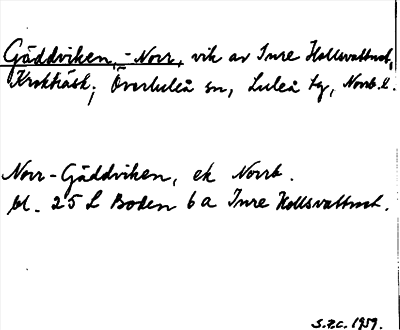 Gäddviken, -Norr, vik av Inre Hollsvattnet,
Krokträsk, Överluleå sn, Luleå tg, Norrb. l.
Norr-Gäddviken, ek Norrb.
bl. 25 L Boden 6 a Inre Hollsvattnet.
S.F.C. 1959.